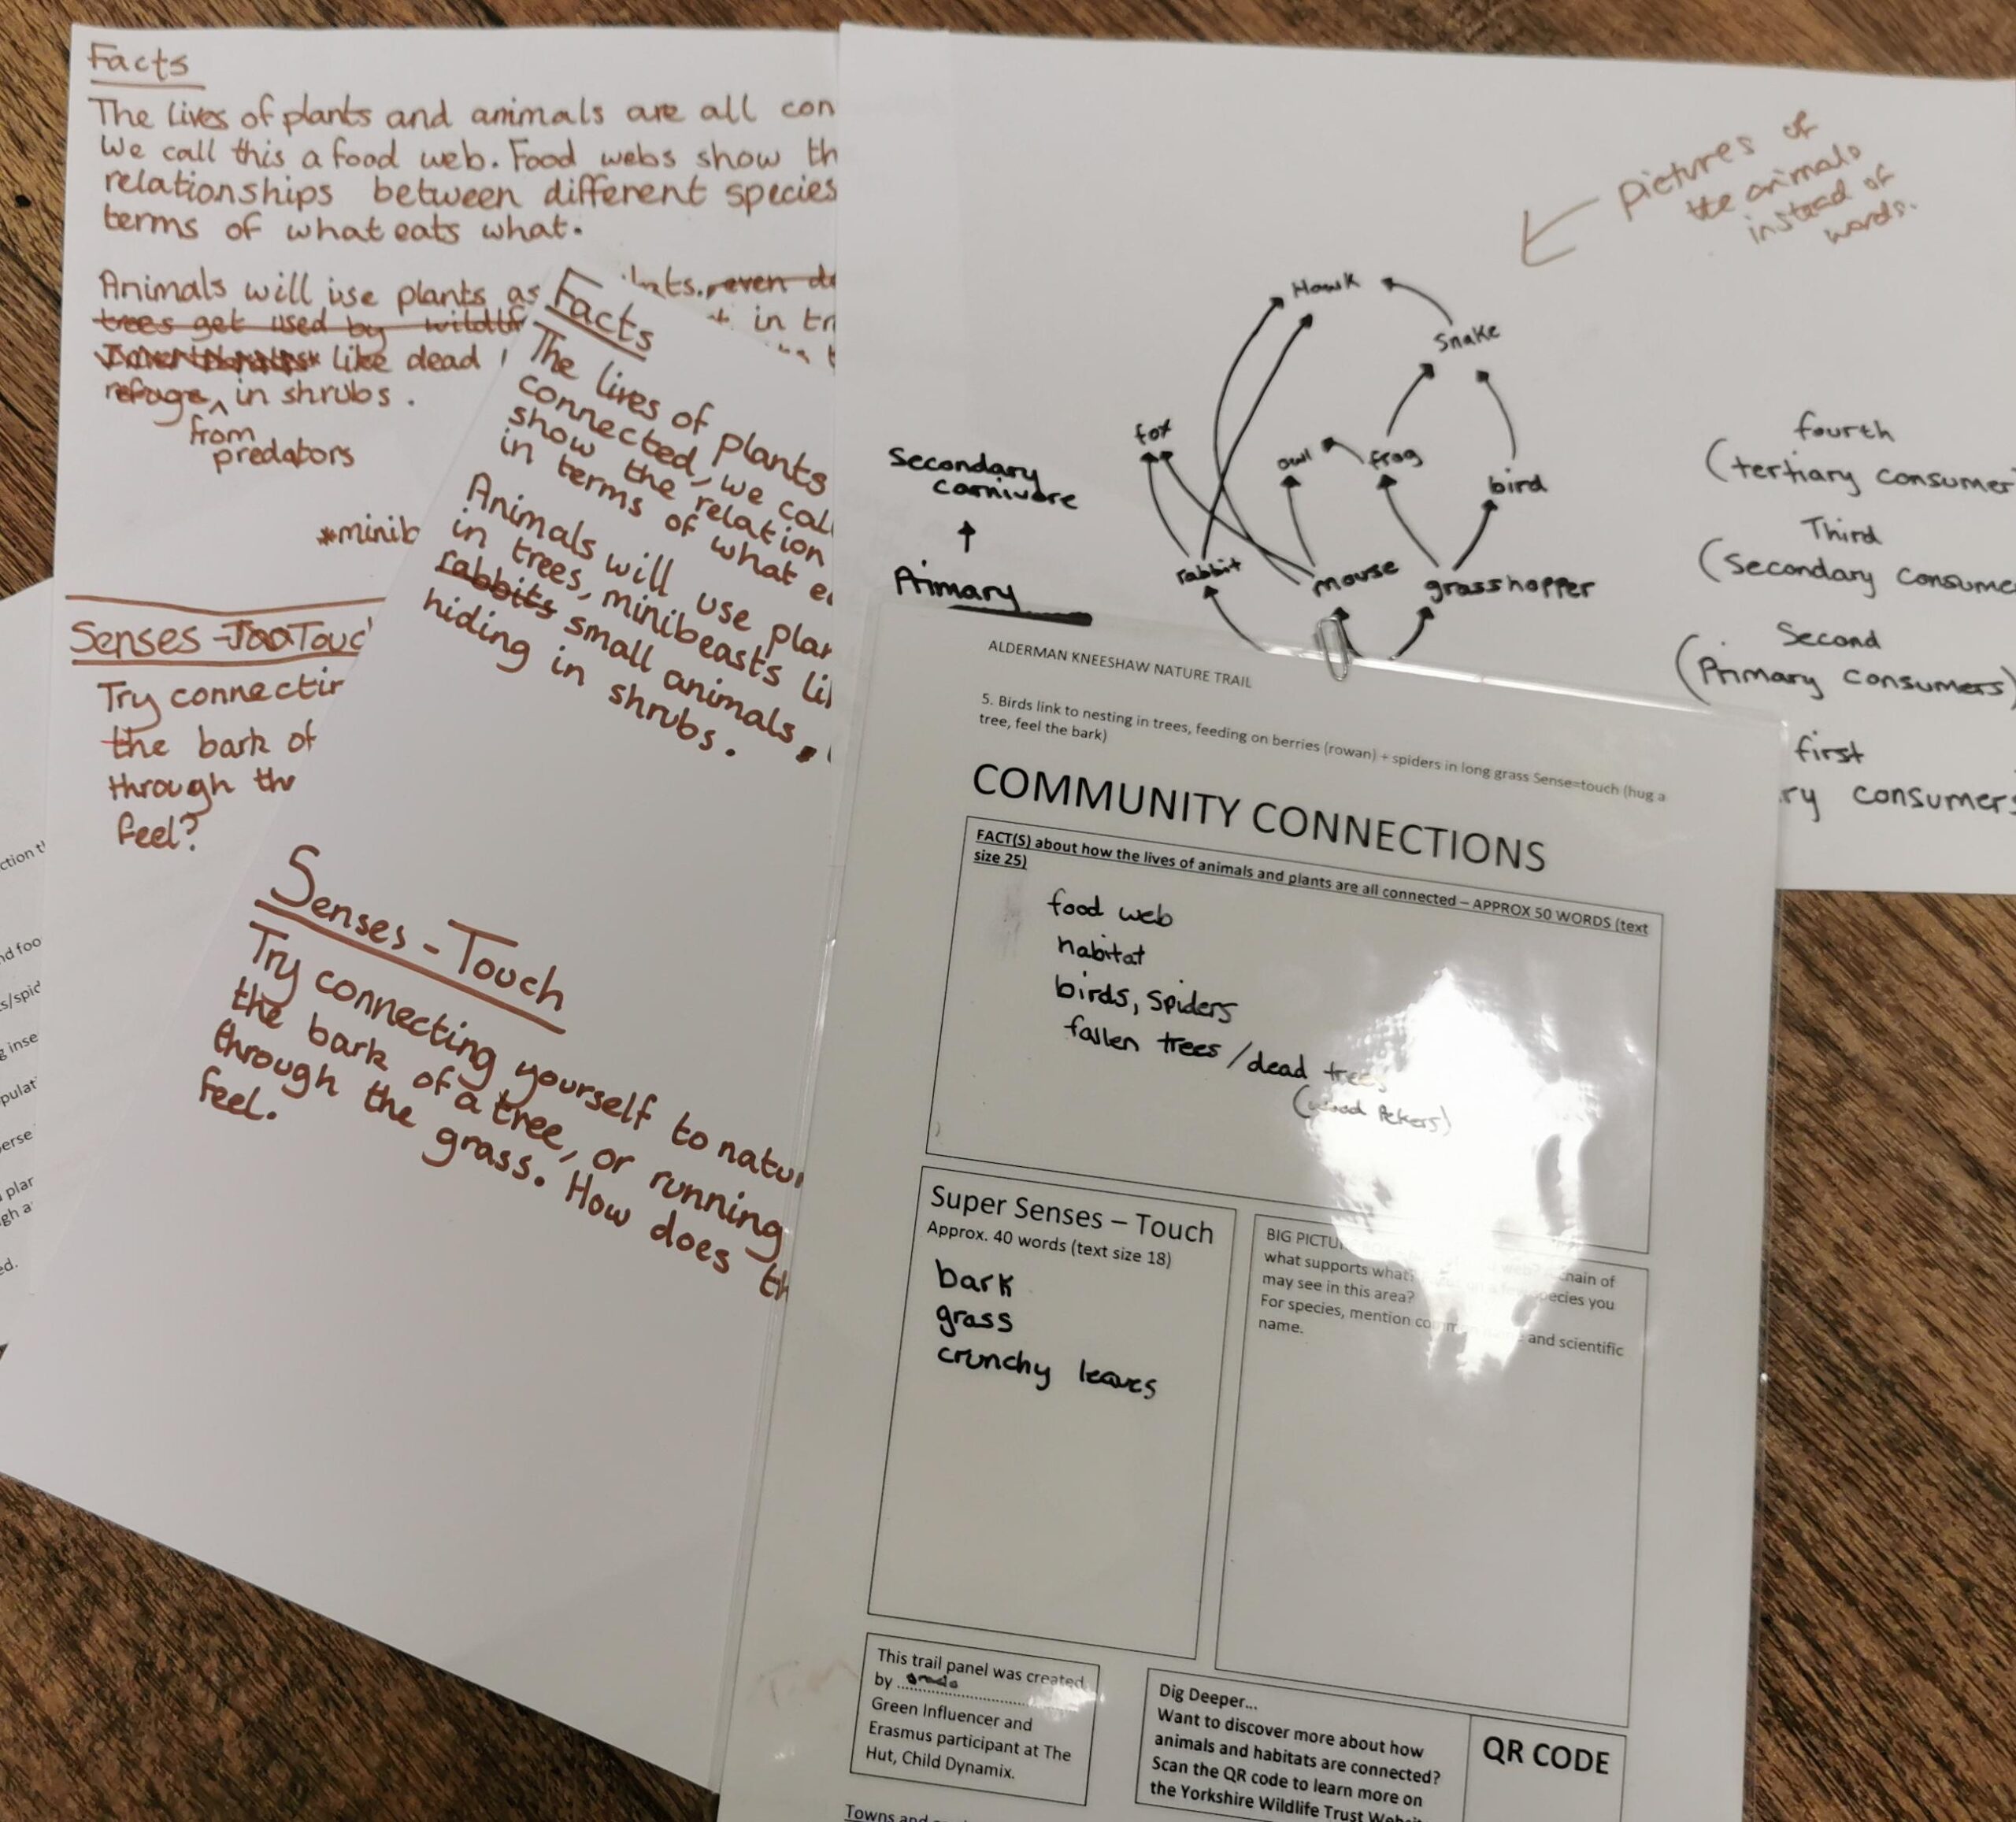 Facts
The lives of plants and animals are all con
We call this a food web. Food webs show th
relationships between different species
terms of what eats what.
Animals will use plants as
trees get used by
like dead
refuge in shrubs.
from
predators
even
in tr
*minib
Senses - Touc
Try connectin
the bark of
through th
feel?
Facts
The lives of plants
connected, we cal
show the relation
in terms of what e
Animals will use plan
in trees, minibeasts li
rabbits small animals,
hiding in shrubs.
Senses - Touch
Try connecting yourself to natur
the bark of a tree, or running
through the grass. How does th
feel.
ction t
nd foo
s/spid
g inse
pulat
erse
plan
gh a
ed.
pictures of
the animals
instead of
words.
Hawk
Snake
fox
owl
frog
bird
rabbit
mouse
grasshopper
Secondary
carnivore
Primary
fourth
(tertiary consumer
Third
(Secondary consume
Second
(Primary consumers)
first
ry consumers
ALDERMAN KNEESHAW NATURE TRAIL
5. Birds link to nesting in trees, feeding on berries (rowan) + spiders in long grass Sense=touch (hug a
tree, feel the bark)
COMMUNITY CONNECTIONS
FACT(S) about how the lives of animals and plants are all connected – APPROX 50 WORDS (text
size 25)
food web
habitat
birds, spiders
fallen trees / dead trees
(wood Pekers)
Super Senses – Touch
Approx. 40 words (text size 18)
bark
grass
crunchy leaves
BIG PICTU web? chain of
what supports what? species you
may see in this area?
For species, mention and scientific
name.
This trail panel was created
by
Green Influencer and
Erasmus participant at The
Hut, Child Dynamix.
Dig Deeper...
Want to discover more about how
animals and habitats are connected?
Scan the QR code to learn more on
the Yorkshire Wildlife Trust Websi
QR CODE
Towns and